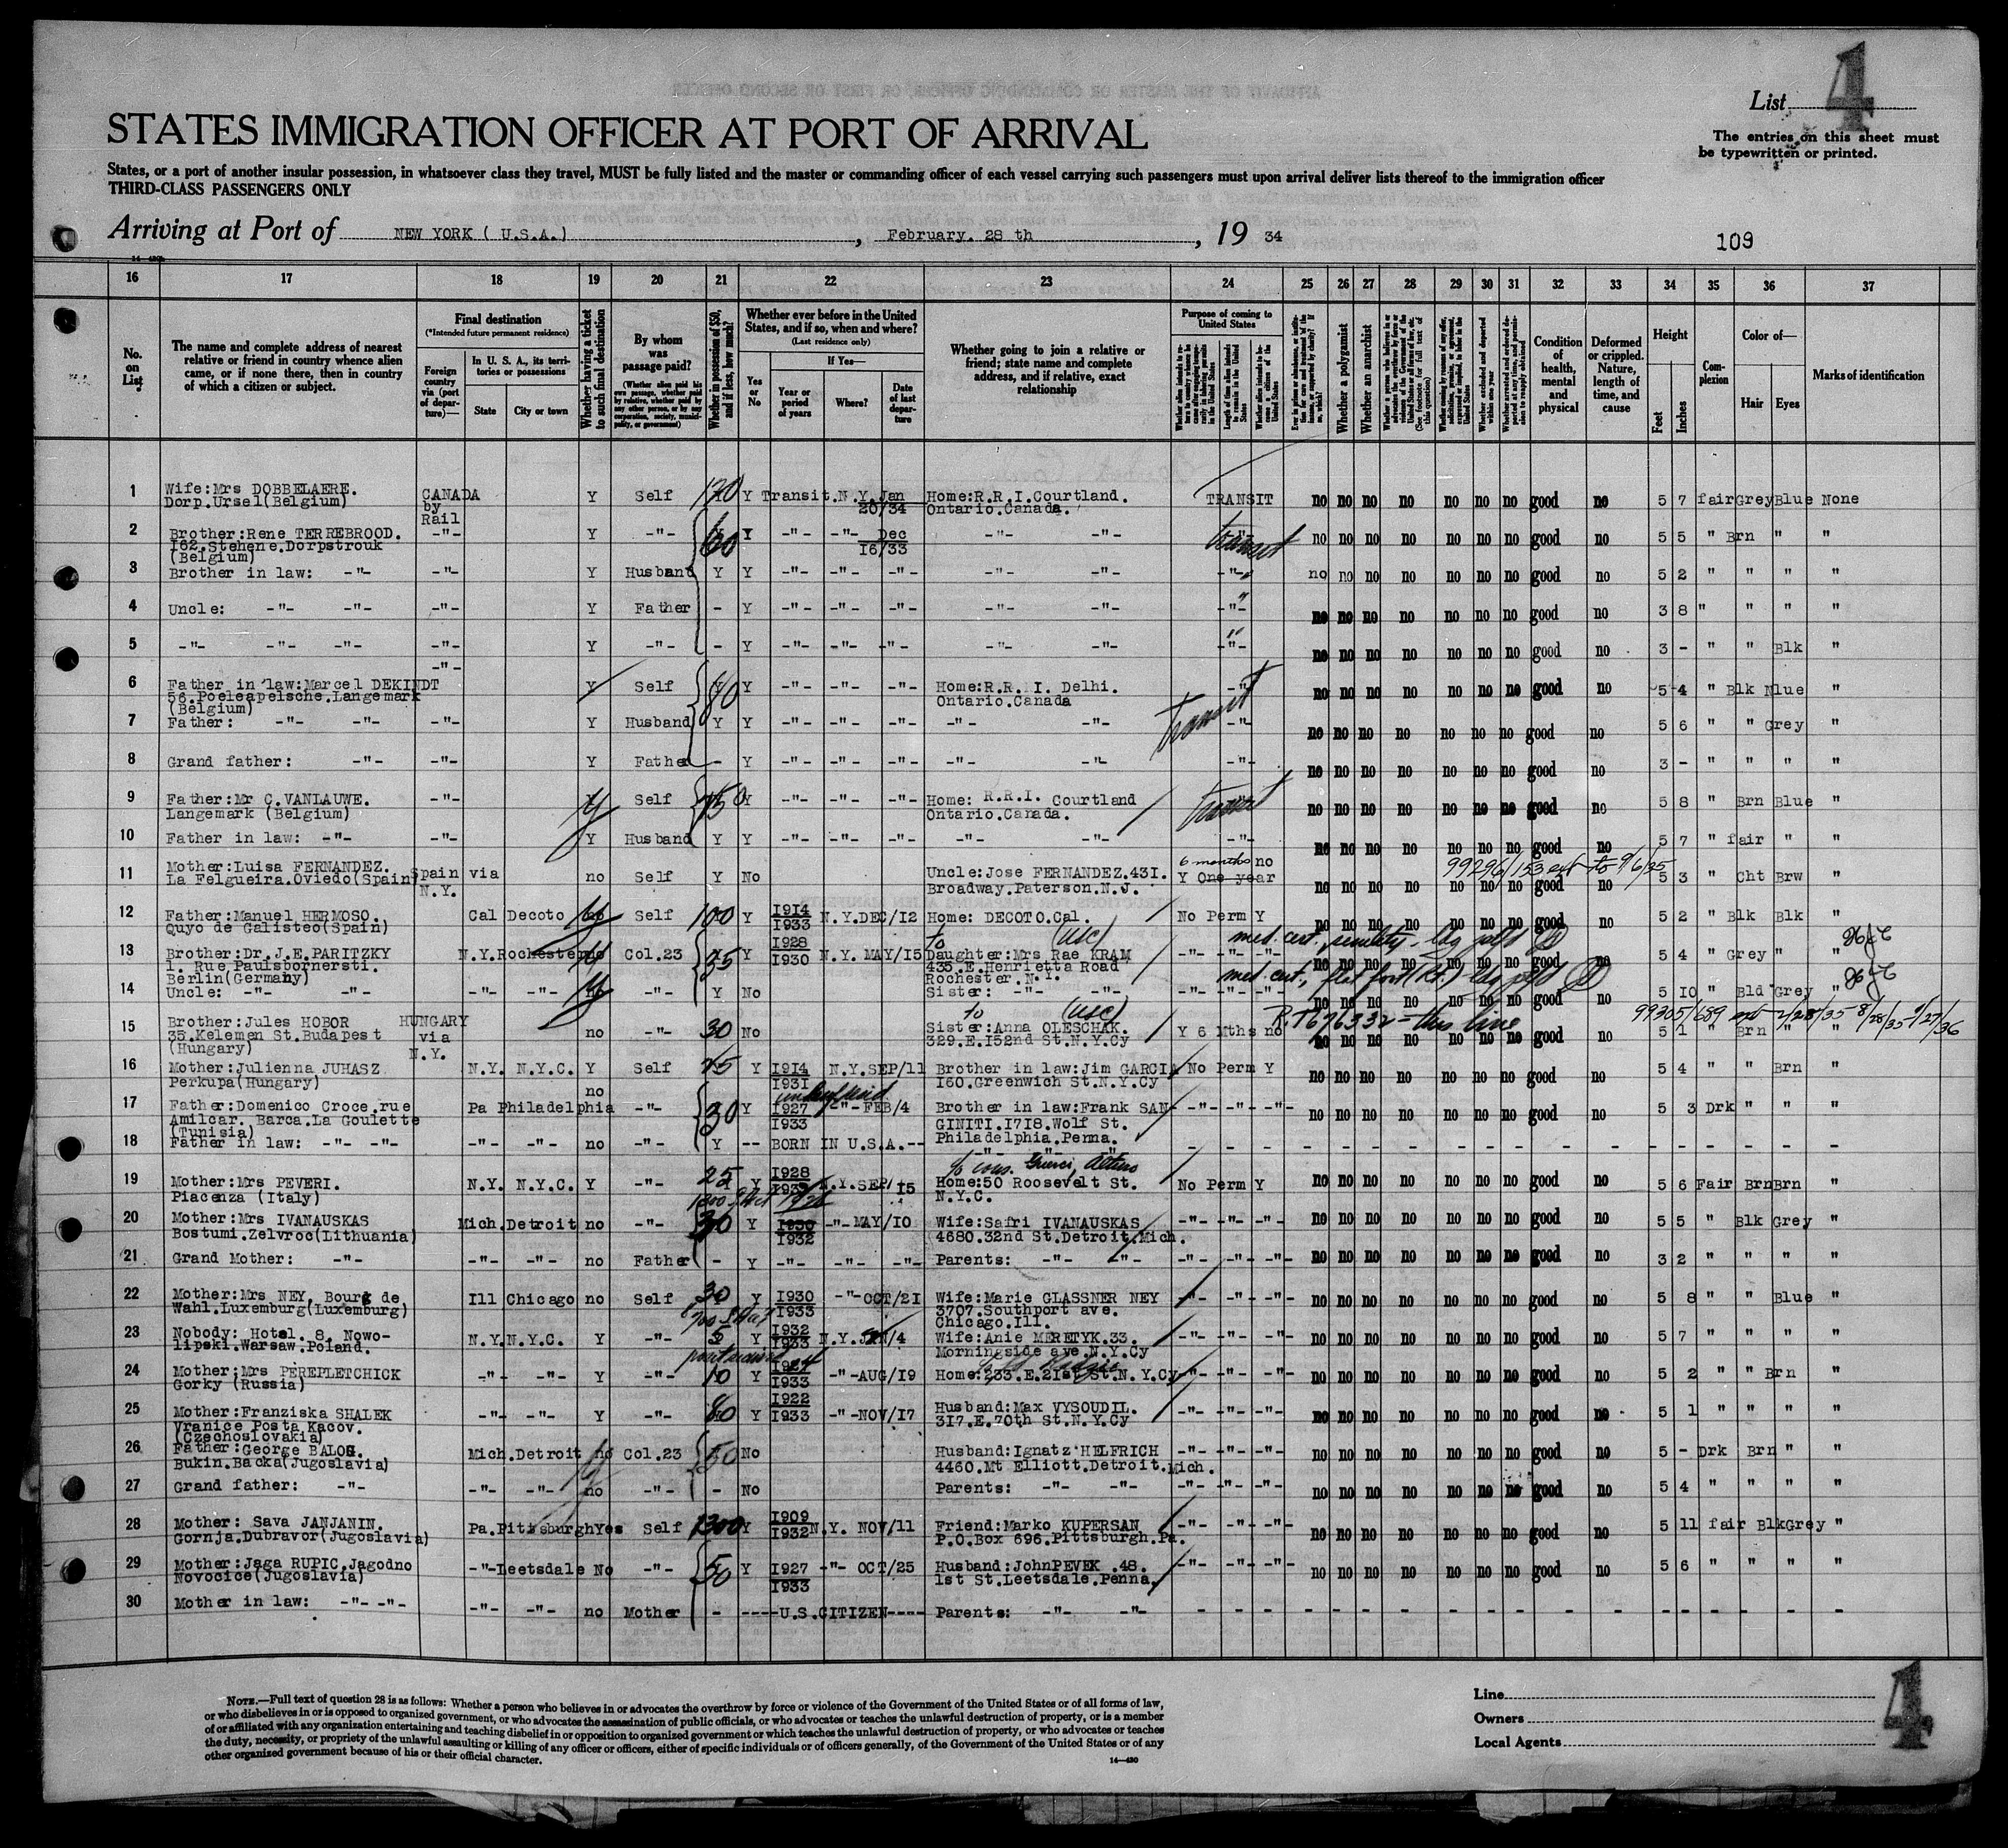 List 4
The entries on this sheet must
be typewritten or printed.
STATES IMMIGRATION OFFICER AT PORT OF ARRIVAL
States, or a port of another insular possession, in whatsoever class they travel, MUST be fully listed and the master or commanding officer of each vessel carrying such passengers must upon arrival deliver lists thereof to the immigration officer
THIRD-CLASS PASSENGERS ONLY
Arriving at Port of NEW YORK ( U.S.A.) , February. 28 th , 19 34
109
16 17 18 19 20 21 22 23 24 25 26 27 28 29 30 31 32 33 34 35 36 37
No. on List
The name and complete address of nearest relative or friend in country whence alien came, or if none there, then in country of which a citizen or subject.
Final destination
(*Intended future permanent residence)
Foreign country via (port of departure)—
In U. S. A., its territories or possessions
State City or town
Whether having a ticket to such final destination
By whom was passage paid?
(Whether alien paid his own passage, whether paid by relative, whether paid by any other person, or by any corporation, society, municipality, or government)
Whether in possession of $50, and if less, how much?
Whether ever before in the United States, and if so, when and where?
(Last residence only)
Yes or No
If Yes—
Year or period of years
Where?
Date of last departure
Whether going to join a relative or friend; state name and complete address, and if relative, exact relationship
Purpose of coming to United States
Whether a polygamist
Whether an anarchist
Condition of health, mental and physical
Deformed or crippled. Nature, length of time, and cause
Height
Feet Inches
Complexion
Color of—
Hair Eyes
Marks of identification
1 Wife:Mrs DOBBELAERE. CANADA Y Self 120 Y Transit.N.Y.Jan Home:R.R.I.Courtland. TRANSIT no no no no no no no good no 5 7 fair Grey Blue None
Dorp.Ursel(Belgium) by Rail 20/34 Ontario.Canada.
2 Brother:Rene TERREBROOD. -"- Y -"- 60 Y -"- -"- Dec -"- -"- transit no no no no no no no good no 5 5 " Brn " "
162.Stehene.Dorpstrouk 16/33
(Belgium)
3 Brother in law: -"- -"- Y Husband Y Y -"- -"- -"- -"- -"- -"- no no no no no no no good no 5 2 " " " "
4 Uncle: -"- -"- -"- Y Father - Y -"- -"- -"- -"- -"- -"- no no no no no no no good no 3 8 " " " "
5 -"- -"- -"- -"- Y -"- - Y -"- -"- -"- -"- -"- -"- no no no no no no no good no 3 - " " Blk "
6 Father in law:Marcel DEKINDT -"- Y Self 80 Y -"- -"- -"- Home:R.R.I. Delhi. -"- no no no no no no no good no 5 4 " Blk Nlue "
56.Poeleapelsche.Langemark Ontario.Canada
(Belgium)
7 Father: -"- -"- -"- Y Husband Y Y -"- -"- -"- -"- -"- transit -"- no no no no no no no good no 5 6 " " Grey "
8 Grand father: -"- -"- Y Father - Y -"- -"- -"- -"- -"- -"- no no no no no no no good no 3 - " " " "
9 Father:Mr C.VANLAUWE. -"- y Self 150 Y -"- -"- -"- Home: R.R.I. Courtland transit no no no no no no no good no 5 8 " Brn Blue "
Langemark (Belgium) Ontario.Canada.
10 Father in law: -"- -"- Y Husband Y Y -"- -"- -"- -"- -"- -"- no no no no no no no good no 5 7 " fair " "
11 Mother:Luisa FERNANDEZ. Spain via no Self Y No Uncle:Jose FERNANDEZ.431. 6 months no Y One year no no no no no no no good no 5 3 " Cht Brw "
La Felgueira.Oviedo(Spain) N.Y. Broadway.Paterson.N.J. 99296/153 ext to 9/6/35
12 Father:Manuel HERMOSO. Cal Decoto Self 100 Y 1914 1933 N.Y.DEC/12 Home: DECOTO.Cal. No Perm Y no no no no no no no good no 5 2 " Blk Blk "
Quyo de Galisteo(Spain)
13 Brother:Dr.J.E.PARITZKY N.Y.Rochester Col.23 75 1928 1930 N.Y.MAY/15 to (USC) Daughter:Mrs Rae KRAM -"- -"- -"- no no no no no no no good no 5 4 " Grey " "
1. Rue Paulsbornersti. 435.E.Henrietta Road med cert, senility
Berlin(Germany) Rochester.N.Y.
14 Uncle: -"- -"- -"- -"- -"- Y No Sister: -"- -"- -"- -"- -"- no no no no no no no good no 5 10 " Bld Grey "
med cert, flat foot (Rt.)
15 Brother:Jules HOBOR HUNGARY no -"- 30 No to (USC) Sister:Anna OLESCHAK. Y 6 Mths no no no no no no no no good no 5 1 " Brn " "
35.Kelemen St.Budapest via 329.E.152nd St.N.Y.Cy
(Hungary) N.Y.
16 Mother:Julienna JUHASZ N.Y. N.Y.C. Y Self 25 Y 1914 1931 N.Y.SEP/11 Brother in law:Jim GARCIA No Perm Y no no no no no no no good no 5 4 " " Brn "
Perkupa(Hungary) 160.Greenwich St.N.Y.Cy
17 Father:Domenico Croce.rue Pa Philadelphia no -"- 30 Y 1927 1933 -"- FEB/4 Brother in law:Frank SAN- -"- -"- -"- no no no no no no no good no 5 3 Drk " " "
Amilcar. Barca.La Goulette GINITI.1718.Wolf St.
(Tunisia) Philadelphia.Penna.
18 Father in law: -"- -"- -"- -"- no -"- Y -- BORN IN U.S.A.-- -"- -"- - - - - - - - - - - - - - - - - -
19 Mother:Mrs PEVERI. N.Y. N.Y.C. Y -"- 25 Y 1928 N.Y.SEP/15 Home:50 Roosevelt St. No Perm Y no no no no no no no good no 5 6 Fair Brn Brn "
Piacenza (Italy) N.Y.C.
20 Mother:Mrs IVANAUSKAS Mich.Detroit no -"- 30 Y 1930 1932 -"- MAY/10 Wife:Safri IVANAUSKAS -"- -"- -"- no no no no no no no good no 5 5 " Blk Grey "
Bostumi.Zelvroc(Lithuania) 4680.32nd St.Detroit.Mich.
21 Grand Mother: -"- -"- -"- no Father - Y -"- -"- -"- Parents: -"- -"- -"- -"- -"- no no no no no no no good no 3 2 " " " "
22 Mother:Mrs NEY, Bourg de Ill Chicago no Self 30 Y 1930 1933 -"- OCT/21 Wife:Marie GLASSNER NEY -"- -"- -"- no no no no no no no good no 5 8 " " Blue "
Wahl.Luxemburg(Luxemburg) 3707.Southport ave.
Chicago.Ill.
23 Nobody: Hotel. 8. Nowo- N.Y. N.Y.C. Y -"- 5 Y 1932 1933 N.Y.JAN/4 Wife:Anie MERETYK.33. -"- -"- -"- no no no no no no no good no 5 7 " " " "
lipski.Warsaw.Poland. Morningside ave.N.Y.Cy
24 Mother:Mrs PEREPLETCHICK -"- -"- Y -"- 10 Y 1924 1933 -"- AUG/19 Home:233.E.21st.St.N.Y.Cy -"- -"- -"- no no no no no no no good no 5 2 " " Brn "
Gorky (Russia)
25 Mother:Franziska SHALEK -"- -"- Y -"- 80 Y 1922 1933 -"- NOV/17 Husband:Max VYSOUDIL. -"- -"- -"- no no no no no no no good no 5 1 " " " "
Vranice Posta Kacov. 317.E.70th St.N.Y.Cy
(Czechoslovakia)
26 Father:George BALOG. Mich.Detroit no Col.23 50 No Husband:Ignatz HELFRICH -"- -"- -"- no no no no no no no good no 5 - Drk Brn " "
Bukin.Backa(Jugoslavia) 4460.Mt Elliott.Detroit.Mich.
27 Grand father: -"- -"- -"- no -"- - No Parents: -"- -"- -"- -"- -"- no no no no no no no good no 5 4 " " " "
28 Mother: Sava JANJANIN. Pa.Pittsburgh Yes Self 1300 Y 1909 1932 N.Y. NOV/11 Friend:Marko KUPERSAN -"- -"- -"- no no no no no no no good no 5 11 fair Blk Grey "
Gornja.Dubravor(Jugoslavia) P.O.Box 696.Pittsburgh.Pa.
29 Mother:Jaga RUPIC.Jagodno -"- Leetsdale No -"- 50 Y 1927 1933 -"- OCT/25 Husband:John PEVEK .48. -"- -"- -"- no no no no no no no good no 5 6 " " " "
Novocice(Jugoslavia) 1st St.Leetsdale.Penna.
30 Mother in law: -"- -"- -"- -"- no Mother - ----U.S.CITIZEN---- Parents: -"- -"- - - - - - - - - - - - - - - - - -
NOTE.—Full text of question 28 is as follows: Whether a person who believes in or advocates the overthrow by force or violence of the Government of the United States or of all forms of law,
or who disbelieves in or is opposed to organized government, or who advocates the assassination of public officials, or who advocates or teaches the unlawful destruction of property, or is a member
of or affiliated with any organization entertaining and teaching disbelief in or opposition to organized government or which teaches the unlawful destruction of property, or who advocates or teaches
the duty, necessity, or propriety of the unlawful assaulting or killing of any officer or officers, either of specific individuals or of officers generally, of the Government of the United States or of any
other organized government because of his or their official character.
14—430
Line
Owners
Local Agents
4